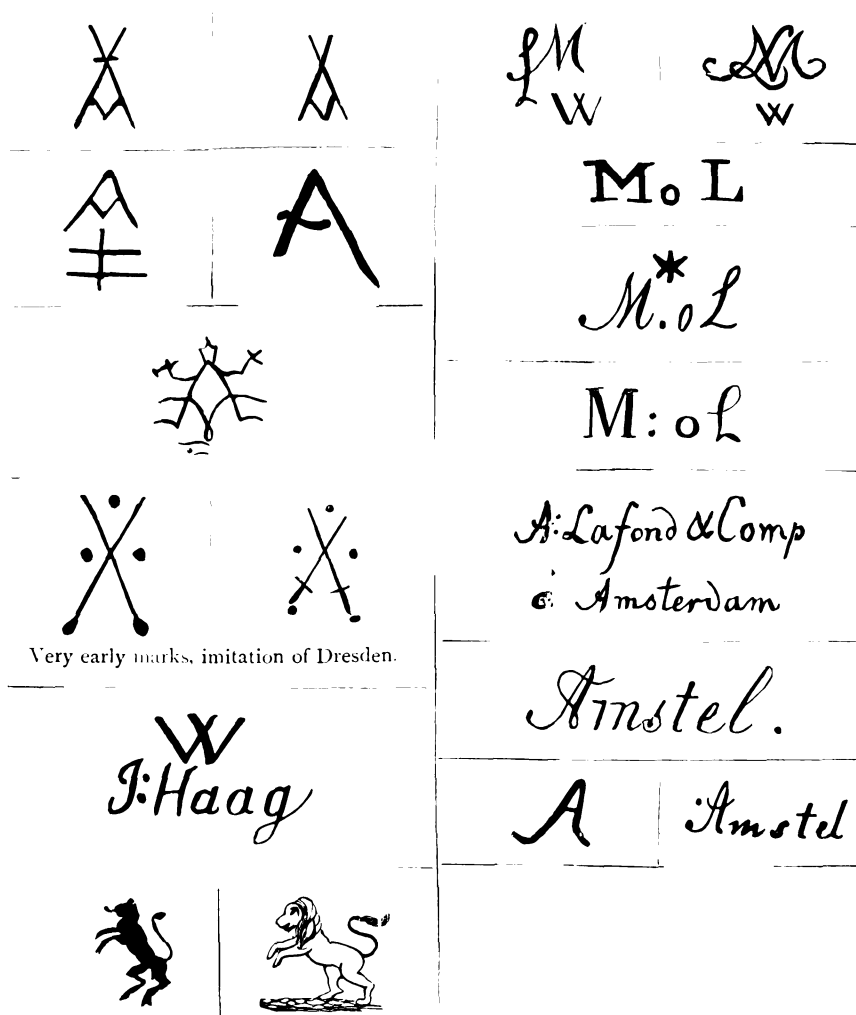 A
Very early marks, imitation of Dresden.
W
J: Haag
M
W
M
W
Mo L
M.*oL
M: oL
A: Lafond & Comp
à Amsterdam
Amstel.
A
:Amstel